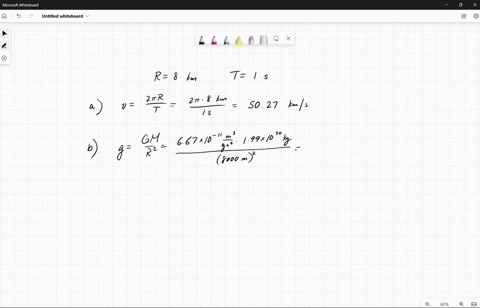 Microsoft Whiteboard
Untitled whiteboard
R = 8 km T = 1 s
a) v = 2πR/T = 2π·8 km/1s = 50.27 km/s
b) g = GM/R² = 6.67×10⁻¹¹ m³/kgs² · 1.99×10³⁰ kg/(8000 m)² =
63%